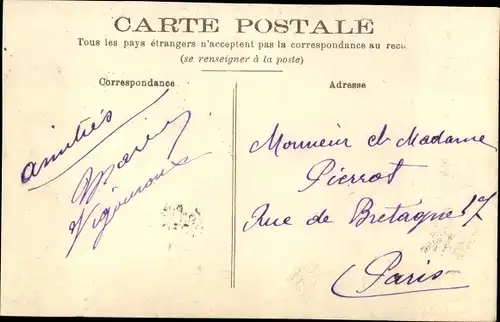 CARTE POSTALE
Tous les pays étrangers n'acceptent pas la correspondance au recto
(se renseigner à la poste)
Correspondance
amitiés
Marius
Vigouroux
Adresse
Monsieur et Madame
Pierrot
Rue de Bretagne 17
Paris